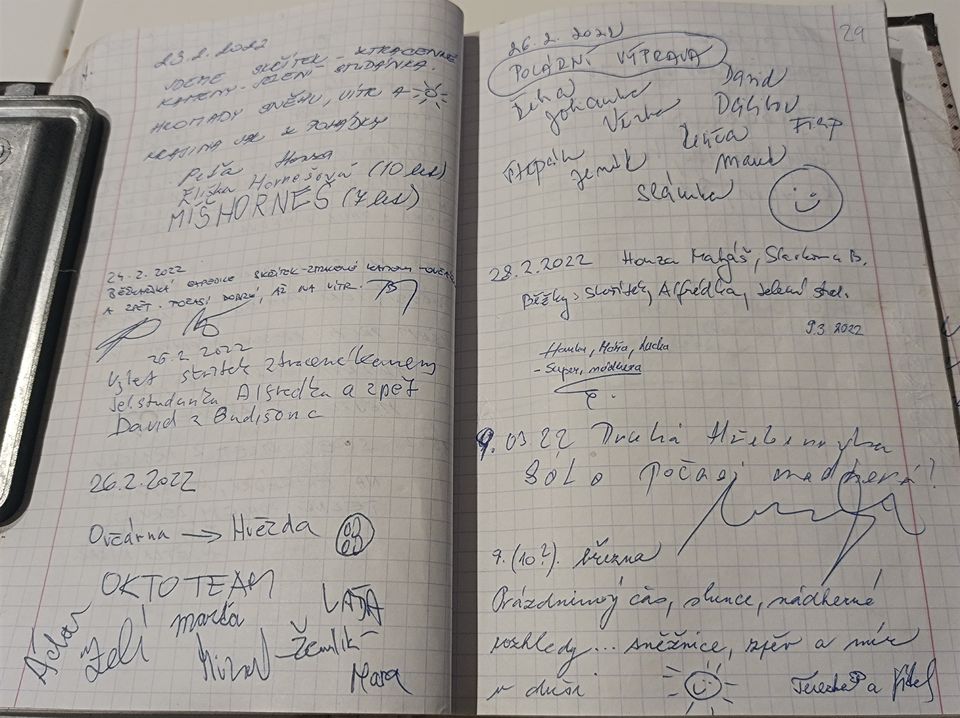 23.2.2022
JDEME SKŘÍTEK - ZTRACENÉ
KAMENY - JELENÍ STUDÁNKA.
HROMADY SNĚHU, VÍTR A
KRAJINA JAK Z POHÁDKY
Péťa Honza
Eliška Hornešová (10 let)
MÍŠ HORNEŠ (7 let)
24.2.2022
BĚŽKAŘSKÁ EXPEDICE SKŘÍTEK - ZTRACENÉ KAMENY
A ZPĚT. POČASÍ DOBRÉ, AŽ NA VÍTR.
25.2.2022
Výlet skřítek ztracené kameny
jel. studánka Alfredka a zpět
David z Budišova
26.2.2022
Ovčárna → Hvězda
OKTO TEAM
LÁĎA
marťa
Žemlík
Mara
29
26.2.2022
POLÁRNÍ VÝPRAVA
David
Johanka
Věrka
Filip
Štěpán
Jeník
Slávka
28.2.2022 Honza Matyáš, B.
Běžky: Skřítek, Alfrédka, Jelení stud.
9.3.2022
Hanka, Lucka
- Super, nádhera
9.03.22 Druhá Hřebenovka
SÓLO Počasí nádhera!
9. (10?). března
Prázdninový čas, slunce, nádherné
rozhledy... sněžnice, zpěv a mír
v duši
Terezka a